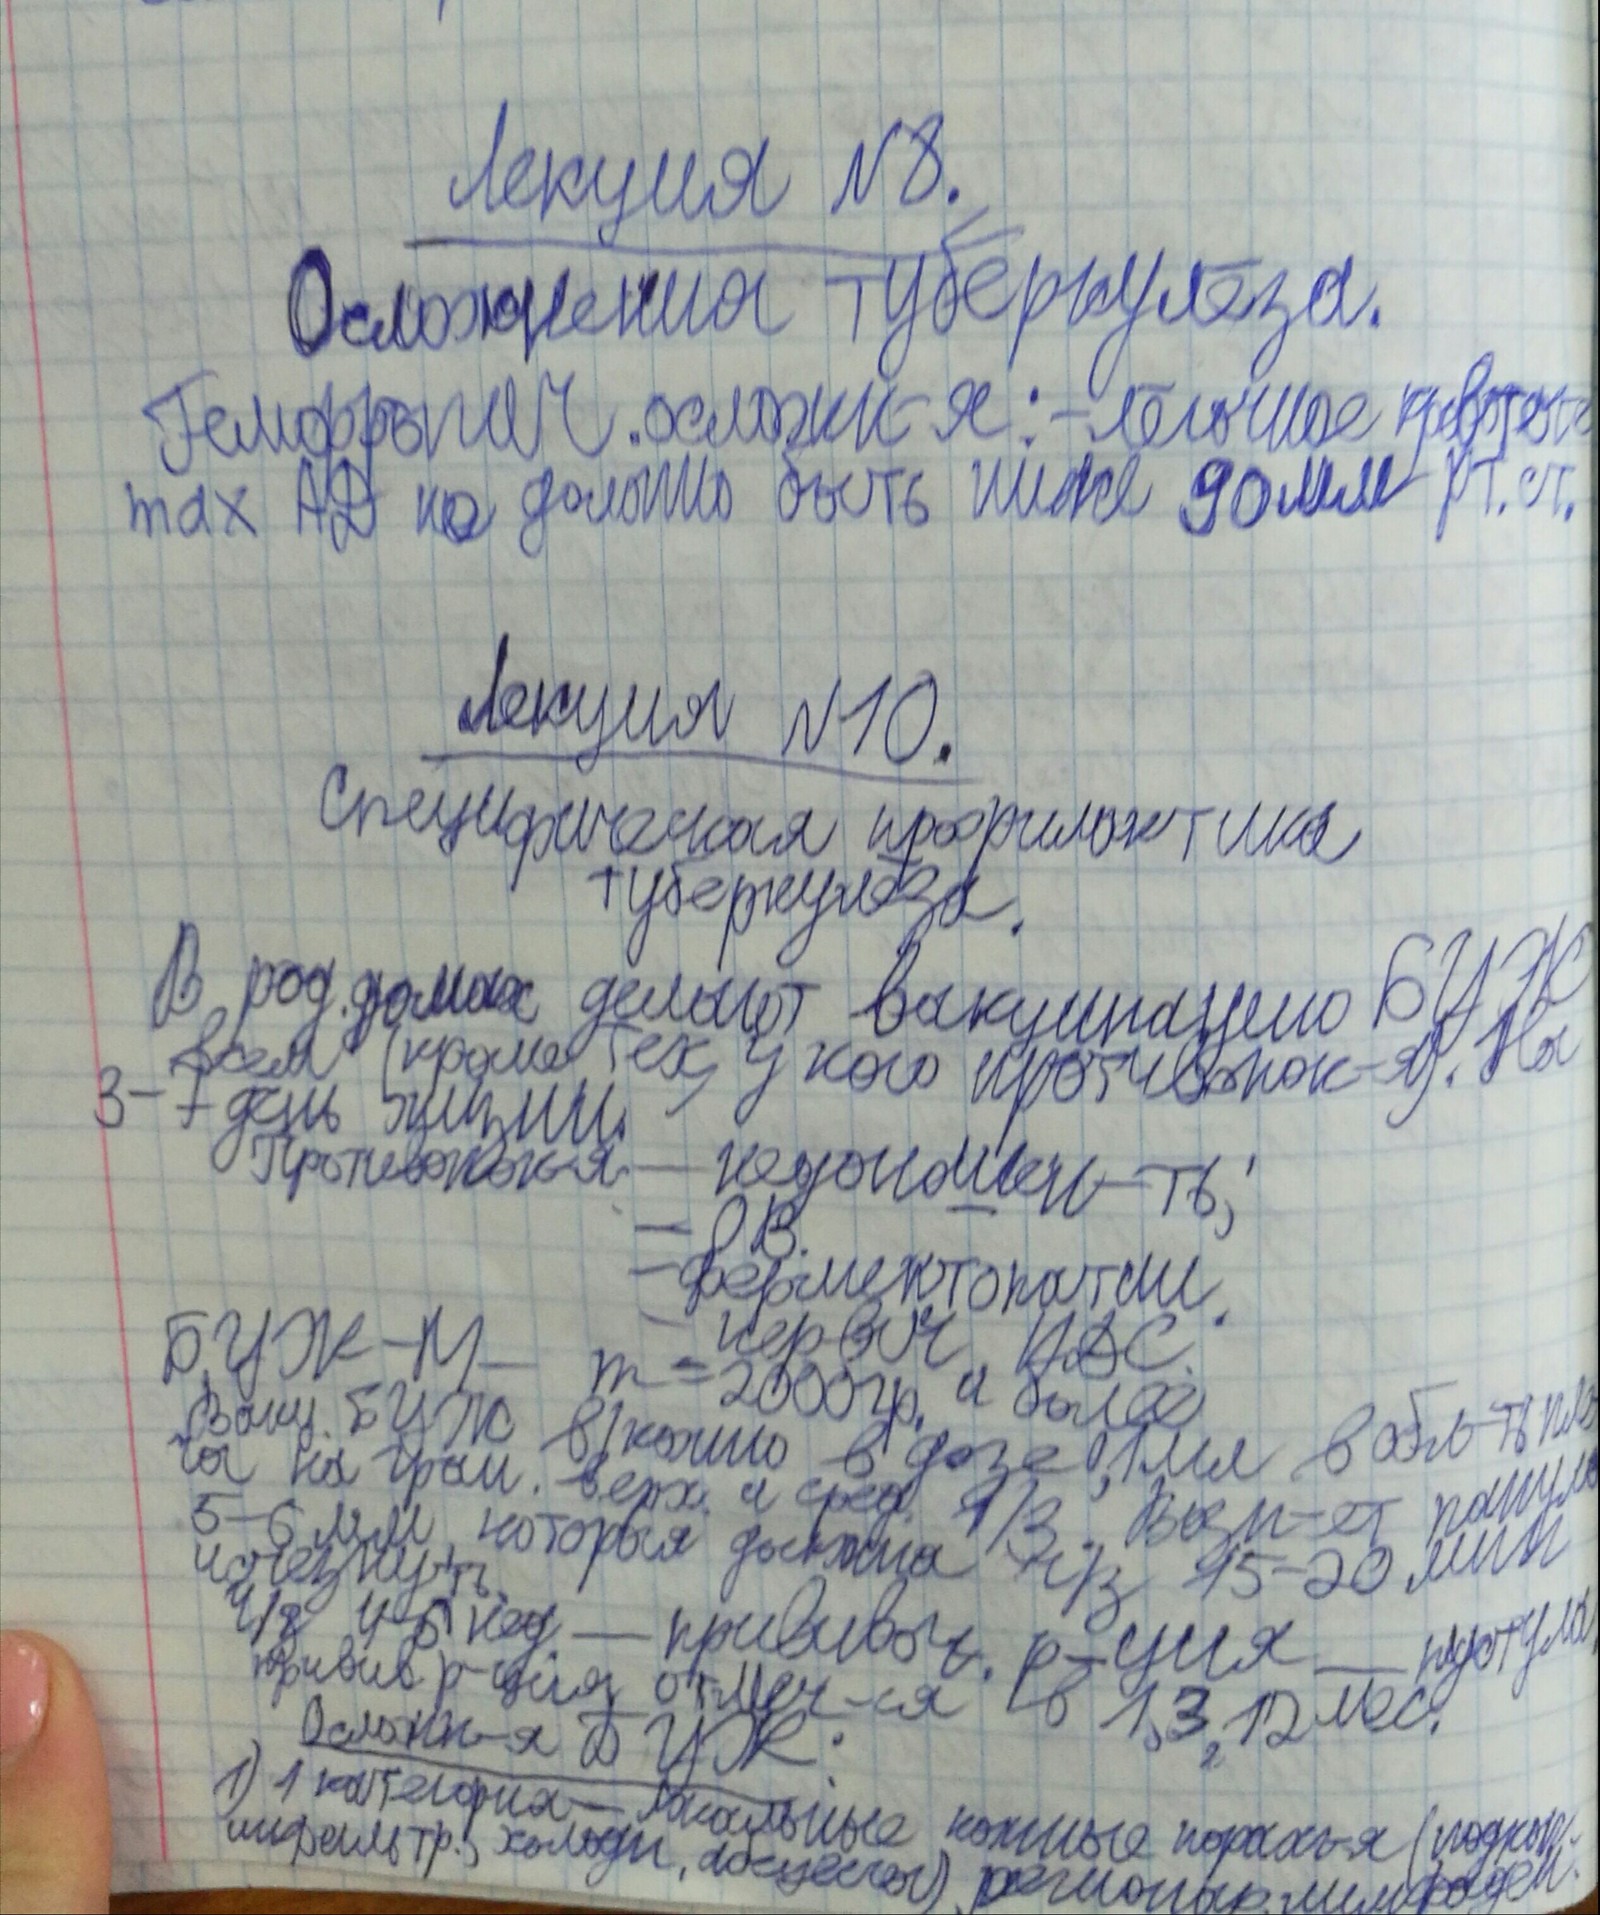 Лекция N8.
Осложнения туберкулёза.
Геморрагич. осложн-я: - лёгочное кровотеч
max АД не должно быть ниже 90 мм рт. ст.
Лекция N10.
Специфическая профилактика
туберкулёза.
В род. домах делают вакцинацию БЦЖ
всем (кроме тех, у кого противопок-я). На
3-7 день жизни.
Противопок-я: — недоношен-ть;
— ОВ.
- ферментопатии.
- первич. ИДС.
БЦЖ-М — m = 2000 гр. и более
Вакц. БЦЖ в/кожно в дозе 0,1 мл в обл-ть пле
ча на гран. верх. и сред. 1/3. Возн-ет папула
5-6 мм, которая должна ч/з 15-20 мин
исчезнуть.
Ч/з 4-6 нед — прививоч. р-ция — пустула,
привив р-ция отмеч-ся в 1, 3, 12 мес.
Осложн-я БЦЖ:
1) 1 категория — локальные кожные пораж-я (подкож.
инфильтр., холодн. абсцессы), регионар. лимфаден.